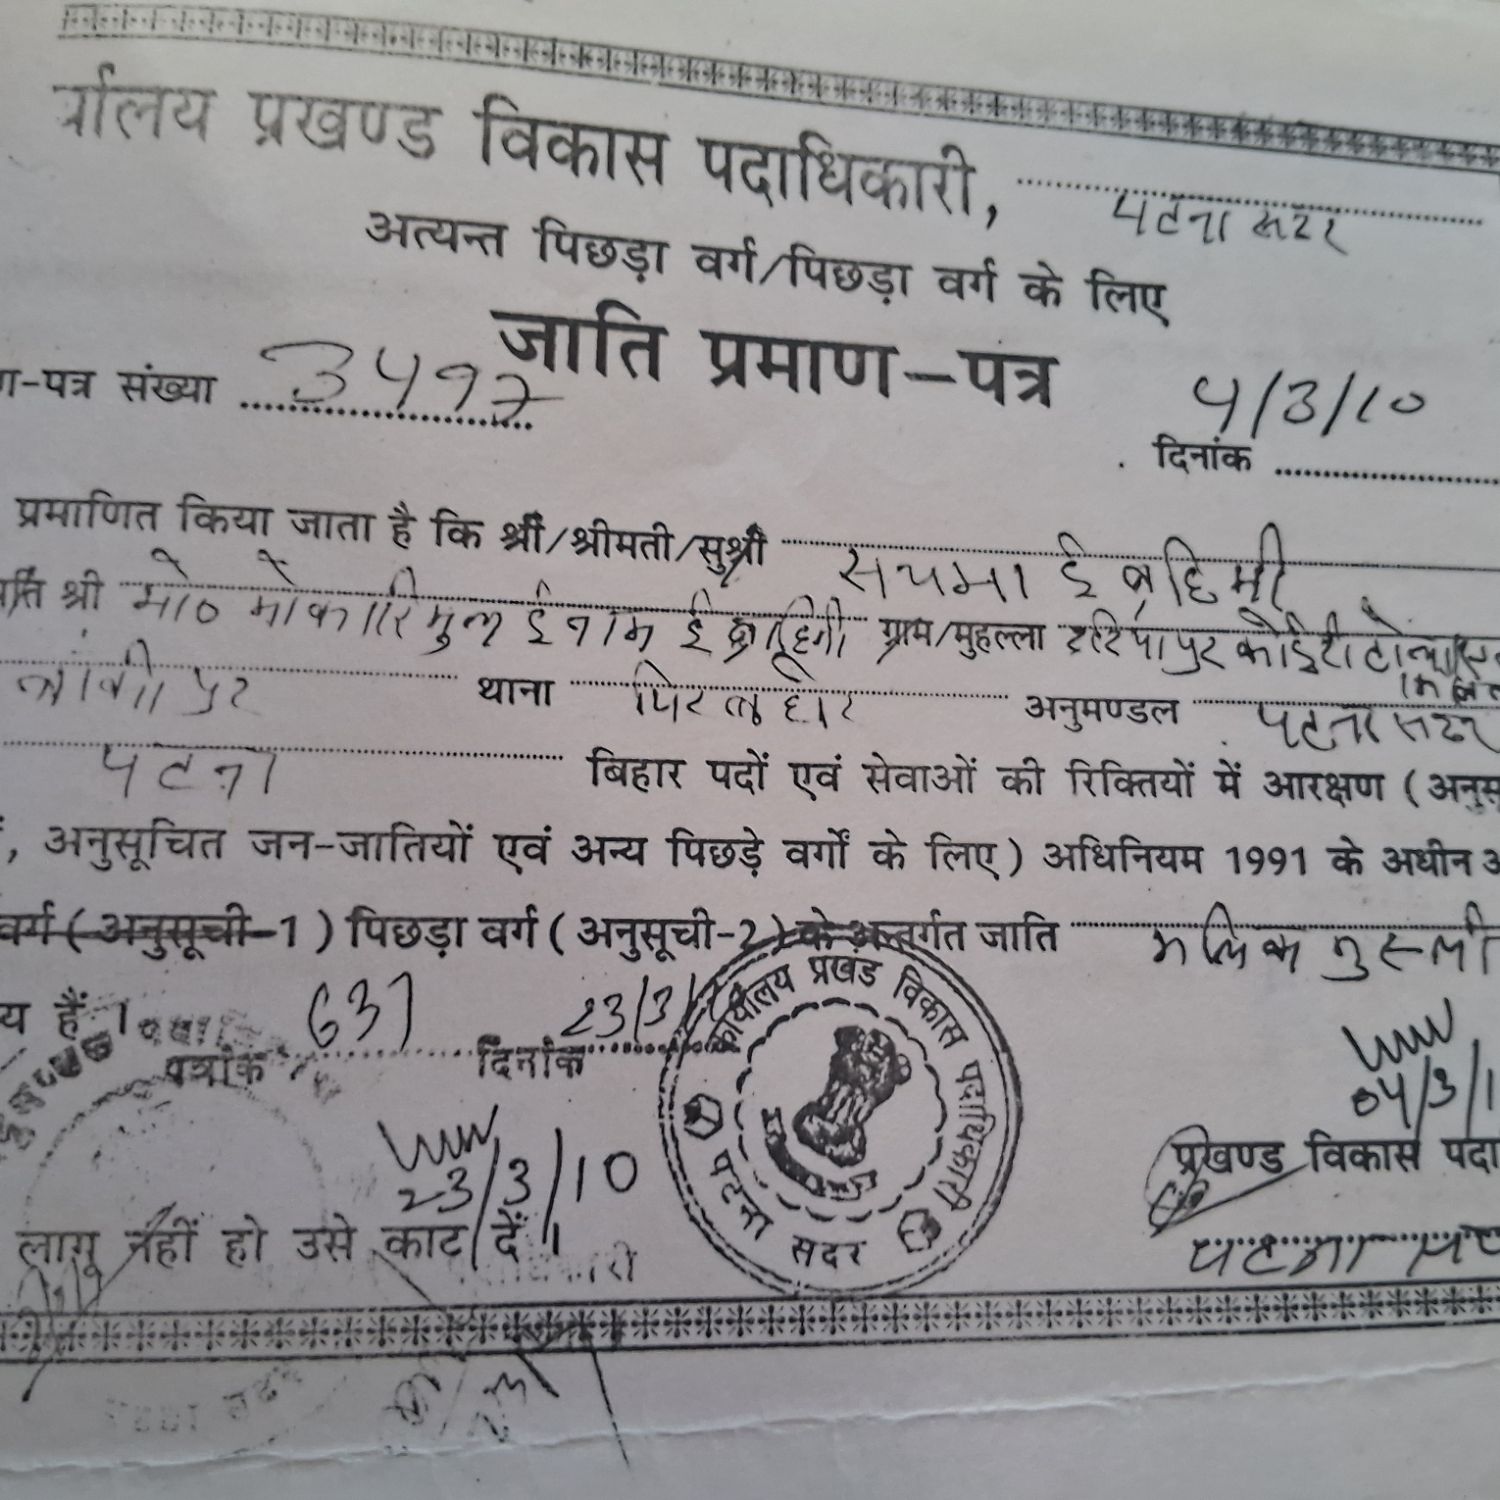 र्यालय प्रखण्ड विकास पदाधिकारी, पटना सदर
अत्यन्त पिछड़ा वर्ग/पिछड़ा वर्ग के लिए
जाति प्रमाण-पत्र
ण-पत्र संख्या 3497
4/3/10
दिनांक
प्रमाणित किया जाता है कि श्री/श्रीमती/सुश्री सयमा ईब्राहिमी
पति श्री मो० मोकारिमुल ईनाम ईब्राहिमी ग्राम/मुहल्ला दरियापुर कोईरी टोला
बांकीपुर थाना पिरबहोर अनुमण्डल पटना सदर
पटना बिहार पदों एवं सेवाओं की रिक्तियों में आरक्षण ( अनुसू
, अनुसूचित जन-जातियों एवं अन्य पिछड़े वर्गों के लिए ) अधिनियम 1991 के अधीन अ
वर्ग ( अनुसूची-1 ) पिछड़ा वर्ग ( अनुसूची-2 ) के अन्तर्गत जाति मलिक मुस्ली
य हैं ।
पत्रांक 637 दिनांक 23/3/10
कार्यालय प्रखंड विकास पदाधिकारी
पटना सदर
04/3/1
23/3/10
प्रखण्ड विकास पदा
लागू नहीं हो उसे काट दें ।
पटना सद